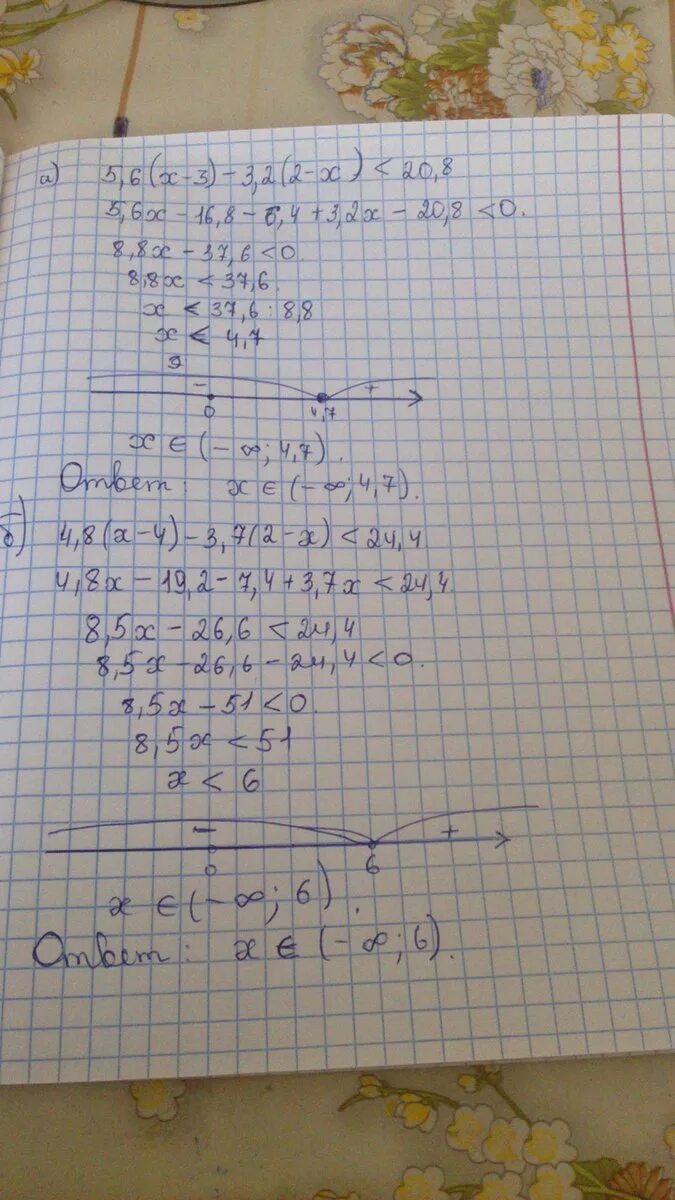 а) 5,6(x-3)-3,2(2-x)<20,8
5,6x-16,8-6,4+3,2x-20,8<0.
8,8x-37,6<0
8,8x<37,6.
x<37,6:8,8
x<4,7
- +
0 4,7
x∈(-∞;4,7).
Ответ: x∈(-∞;4,7).
б) 4,8(x-4)-3,7(2-x)<24,4
4,8x-19,2-7,4+3,7x<24,4
8,5x-26,6<24,4
8,5x-26,6-24,4<0.
8,5x-51<0.
8,5x<51
x<6
- +
0 6
x∈(-∞;6).
Ответ: x∈(-∞;6).